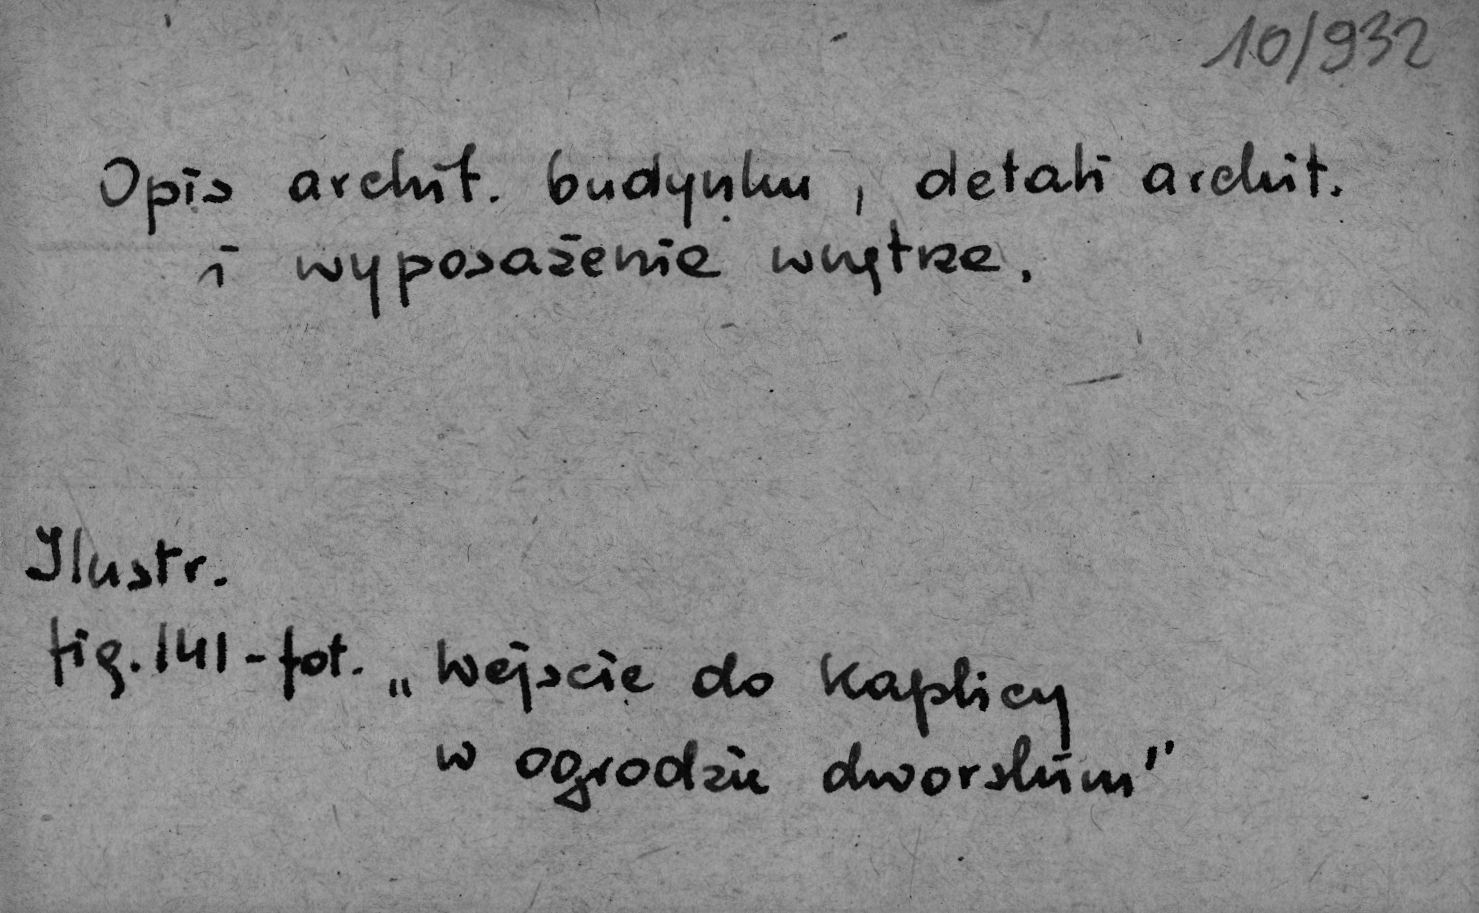 10/932
Opis archit. budynku, detali archit.
i wyposażenie wnętrze.
Ilustr.
fig. 141 - fot. „Wejscie do Kaplicy
w ogrodzie dworskim"